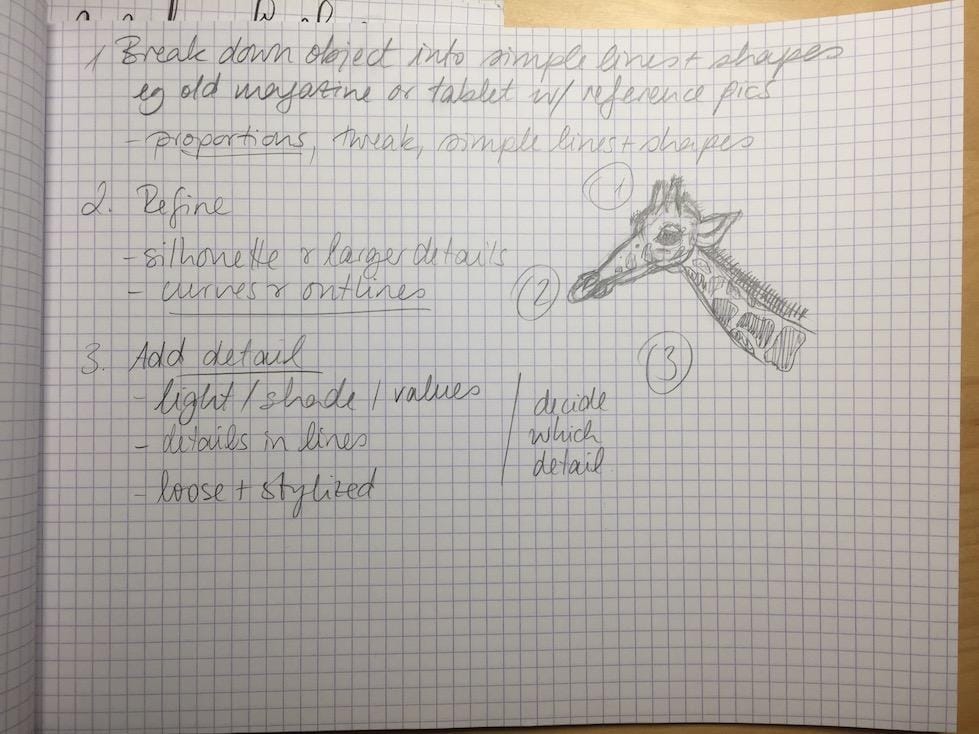 1 Break down object into simple lines + shapes
eg old magazine or tablet w/ reference pics
- proportions, tweak, simple lines + shapes
1
2. Refine
- silhouette & larger details
- curves & outlines
2
3. Add detail
3
- light / shade / values
- details in lines
- loose + stylized
decide
which
detail